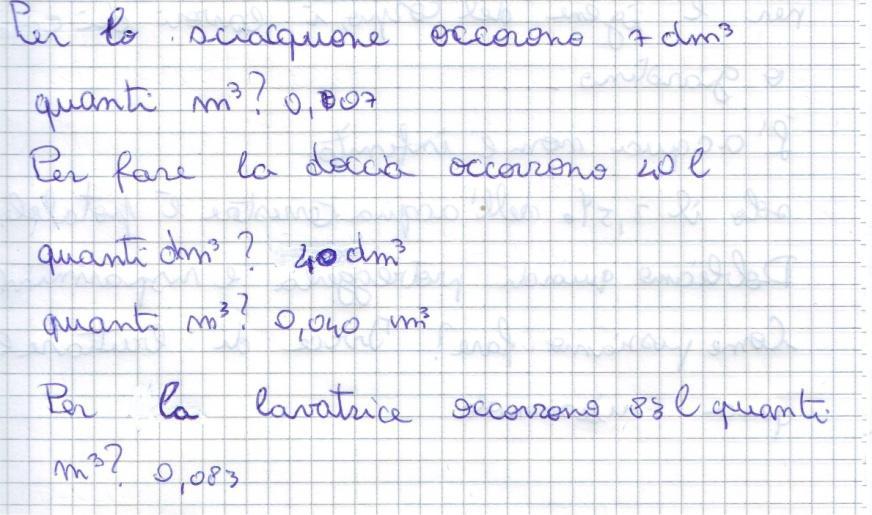 Per lo sciacquone occorono 7 dm³
quanti m³? 0,007
Per fare la doccia occorrono 40 l
quanti dm³? 40 dm³
quanti m³? 0,040 m³
Per la lavatrice occorrono 83 l quanti
m³? 0,083